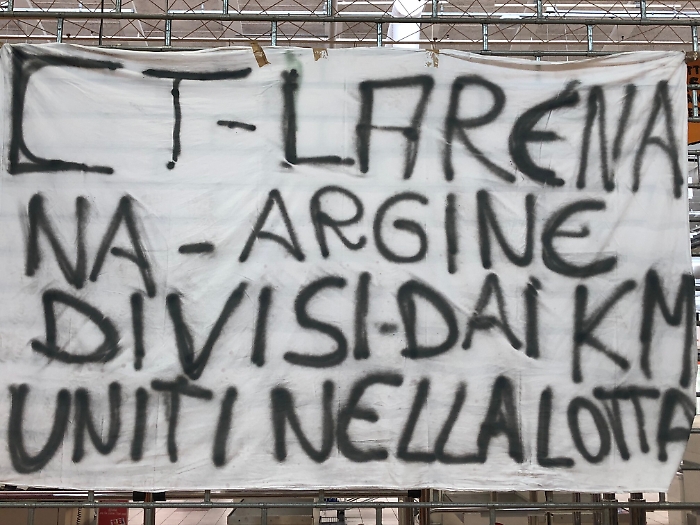 CT-LARENA
NA-ARGINE
DIVISI-DAI KM
UNITI NELLA LOTTA